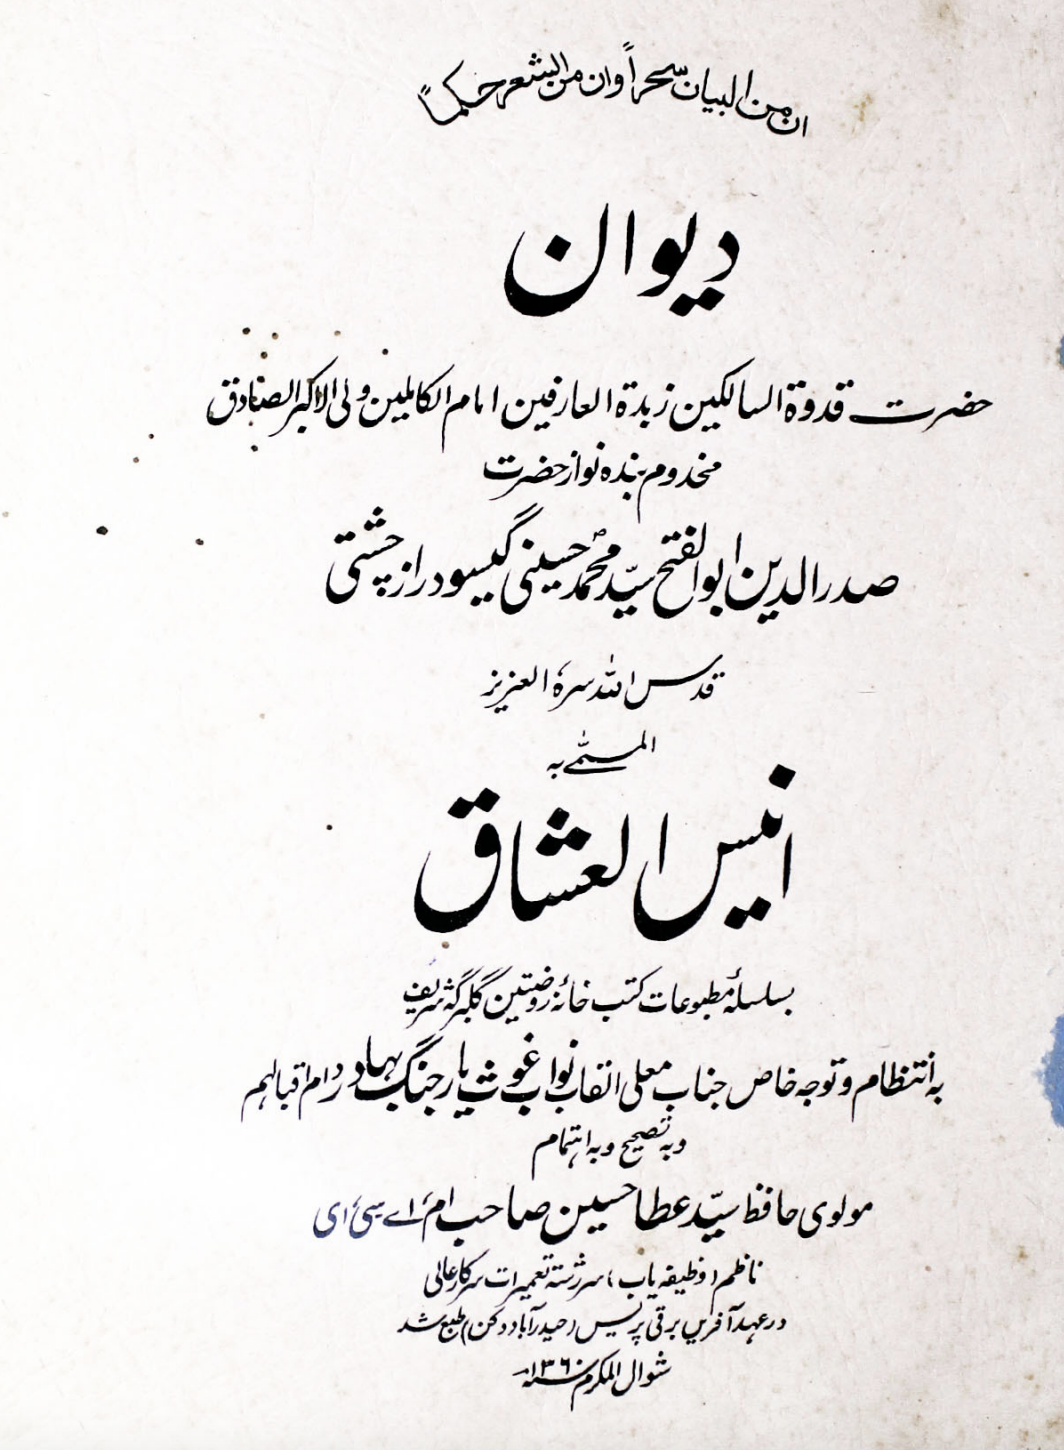 ان من البیان سحراً وان من الشعر حکماً
دیوان
حضرت قدوة السالکین زبدة العارفین امام الکاملین ولی الاکبر الصادق
مخدوم بنده نواز حضرت
صدر الدین ابو الفتح سیّد محمدؐ حسینی گیسو دراز چشتی
قدس اللہ سرہٗ العزیز
المسمّٰی بہ
انیس العشاق
بسلسلۂ مطبوعات کتب خانۂ روضتین گلبرگہ شریف
بہ انتظام و توجہ خاص جناب معلی القاب نواب غوث یار جنگ بہادر دام اقبالہم
و بہ تصحیح و بہ اہتمام
مولوی حافظ سیّد عطا حسین صاحب ام اے سی ای
ناظم (وظیفہ یاب) سررشتہ تعمیرات سرکار عالی
در عہد آفریں برقی پریس (حیدرآباد دکن) طبع شد
شوال المکرم سنہ ۱۳۶۰